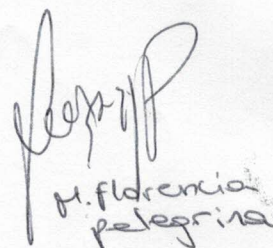 M. florencia
pelegrina